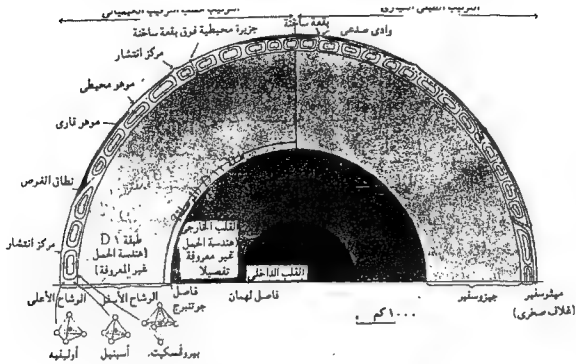 بقعة ساخنة
وادى صدعى
جزيرة محيطية فوق بقعة ساخنة
مركز انتشار
موهو محيطى
موهو قارى
نطاق الغرص
مركز انتشار
طبقة D ١
(هندسة الحمل
غير المعروفة)
القلب الخارجى
(هندسة الحمل
غير معروفة
تفصيلا
القلب الداخلى
الوشاح الأعلى
الوشاح الأسفل
فاصل
جوتنبرج
فاصل لهمان
جيزوسفير
ميثوسفير
(غلاف صخرى)
١٠٠٠ كم
أوليفيه
أسبنيل
بيروفسكيت